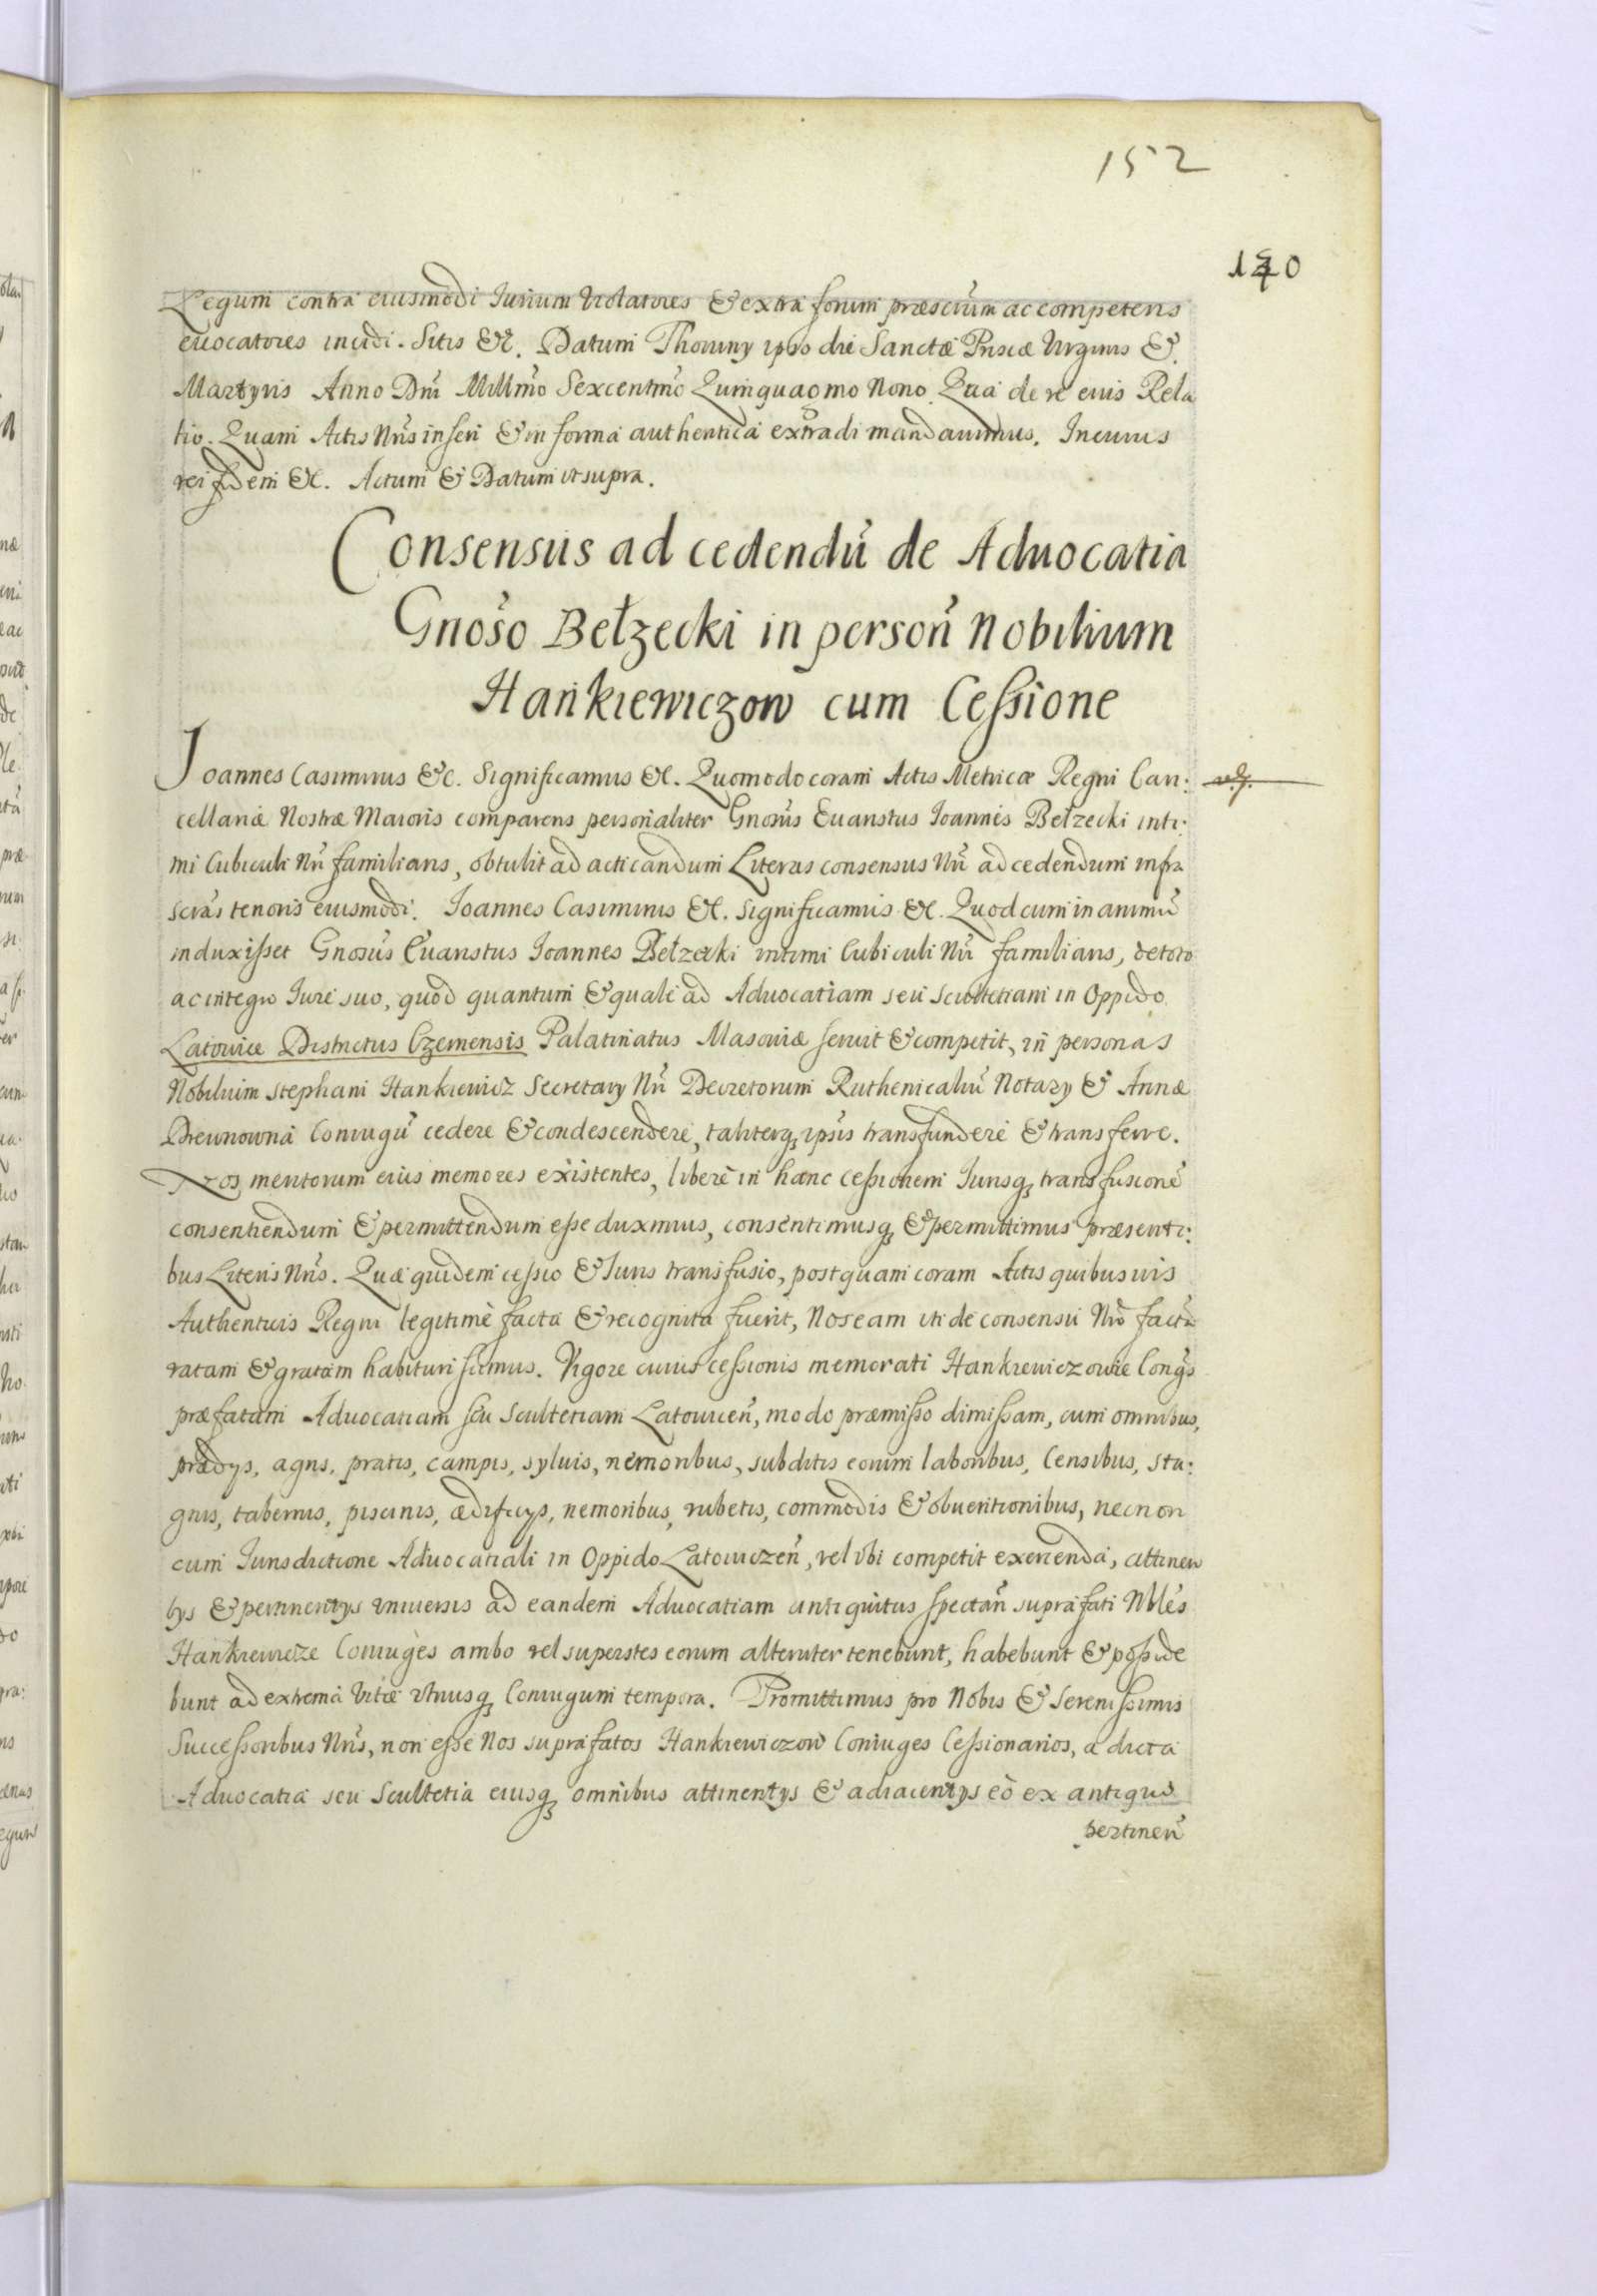 152
140
Legum contra eiusmodi Iurium violatores & extra forum præscrium ac competens
euocatores incidi. Sitis &c. Datum Thoruny ipso die Sanctæ Priscæ Virginis &
Martyris Anno Dni Millmo Sexcentmo Quinquagmo Nono. Qua de re eius Rela
tio. Quam Actis Nris inseri & in forma authentica extradi mandauimus. In cuius
rei fidem &c. Actum & Datum ut supra.
Consensus ad cedendu de Aduocatia
Gnoso Bełzecki in person Nobilium
Hankiewiczow cum Cessione
Joannes Casimirus &c. Significamus &c. Quomodo coram Actis Metricæ Regni Can:
cellariæ Nostræ Maioris comparens personaliter Gnosus Euaristus Ioannes Bełzecki inti:
mi Cubiculi Nri familiaris, obtulit ad acticandum Literas consensus Nri ad cedendum infra
scras tenoris eiusmodi. Joannes Casimirus &c. Significamus &c. Quod cum in animu
induxisset Gnosus Euaristus Ioannes Bełzecki intimi Cubiculi Nri familiaris, de toto
ac integro Iure suo, quod quantum & quale ad Aduocatiam seu Scultetiam in Oppido
Latowice Districtus Czernensis Palatinatus Masouiæ seruit & competit, in personas
Nobilium Stephani Hankiewicz Secretary Nri Decretorum Ruthenicaliu Notary & Annæ
Drewnowna Coniugu cedere & condescendere, taliterq ipsis transfundere & transferre.
Nos meritorum eius memores existentes, liberè in hanc cessionem Iurisq transfusione
consentiendum & permittendum esse duximus, consentimusq & permittimus præsenti:
bus Literis Nris. Quæ quidem cessio & Iuris transfusio, postquam coram Actis quibusuis
Authenticis Regni legitimè facta & recognita fuerit, Nos eam uti de consensu Nro facta
ratam & gratam habituri sumus. Vigore cuius cessionis memorati Hankiewiczowie Congs
præfatam Aduocatiam seu Scultetiam Latouicen, modo præmisso dimissam, cum omnibus,
prædys, agris, pratis, campis, syluis, nemoribus, subditis eorum laboribus, Censibus, sta:
gnis, tabernis, piscinis, ædificys, nemoribus, rubetis, commodis & obuentionibus, nec non
cum Iurisdictione Aduocatiali in Oppido Latowiczen, vel ubi competit exercenda, attinen
tys & pertinentys vniuersis ad eandem Aduocatiam antiquitus spectan suprafati Nbles
Hankiewicze Coniuges ambo vel superstes eorum alteruter tenebunt, habebunt & posside
bunt ad extrema vitæ vtriusq Coniugum tempora. Promittimus pro Nobis & Serenissimis
Successoribus Nris, non esse Nos suprafatos Hankiewiczow Coniuges Cessionarios, a dicta
Aduocatia seu Scultetia eiusq omnibus attinentys & adiacentys eò ex antiquo
pertinen